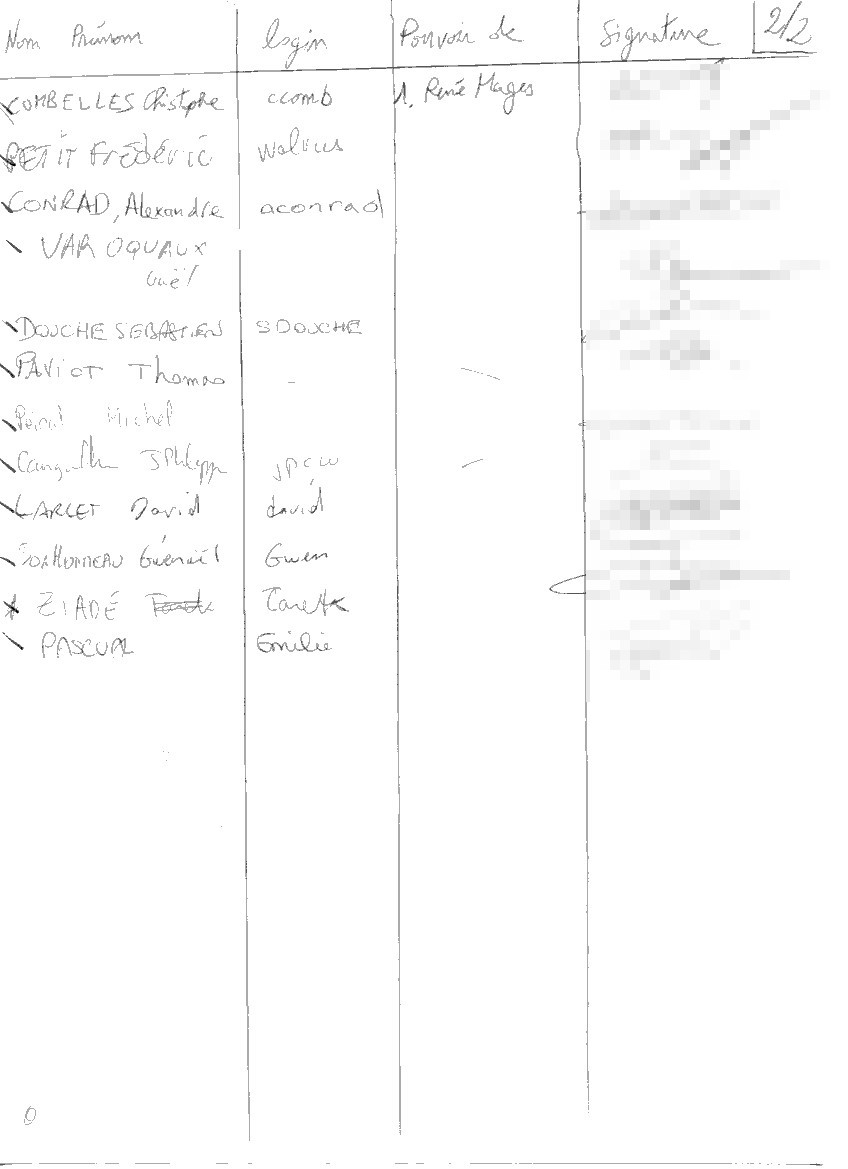 Nom Prénom login Pouvoir de Signature 2/2
COMBELLES Christophe ccomb 1. René Mages
PETIT Frédéric
CONRAD, Alexandre aconrad
VAROQUAUX
Gaël
DOUCHE SEBASTIEN SDOUCHE
PAVIOT Thomas -
Michel
jpcw
LARLET David david
Gwenaël Gwen
ZIADÉ Tarek
PASCUAL Emilie
0